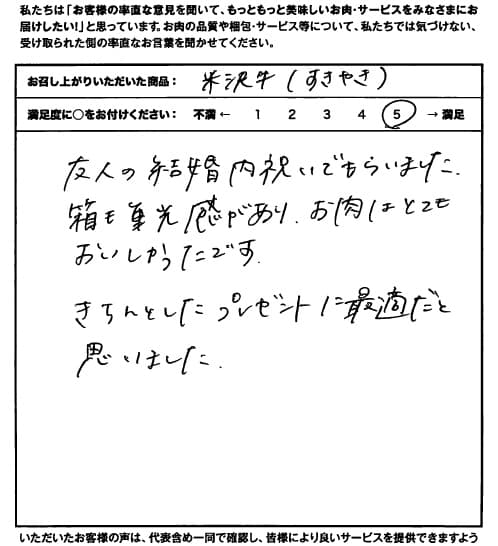 私たちは「お客様の率直な意見を聞いて、もっともっと美味しいお肉・サービスをみなさまにお
届けしたい!」と思っています。お肉の品質や梱包・サービス等について、私たちでは気づけない、
受け取られた側の率直なお言葉を聞かせてください。
お召し上がりいただいた商品： 米沢牛(すきやき)
満足度に○をお付けください： 不満 ← 1 2 3 4 5 → 満足
友人の結婚内祝いでもらいました.
箱も高光感があり、お肉はとても
おいしかったです.
きちんとしたプレゼントに最適だと
思いました.
いただいたお客様の声は、代表含め一同で確認し、皆様により良いサービスを提供できますよう